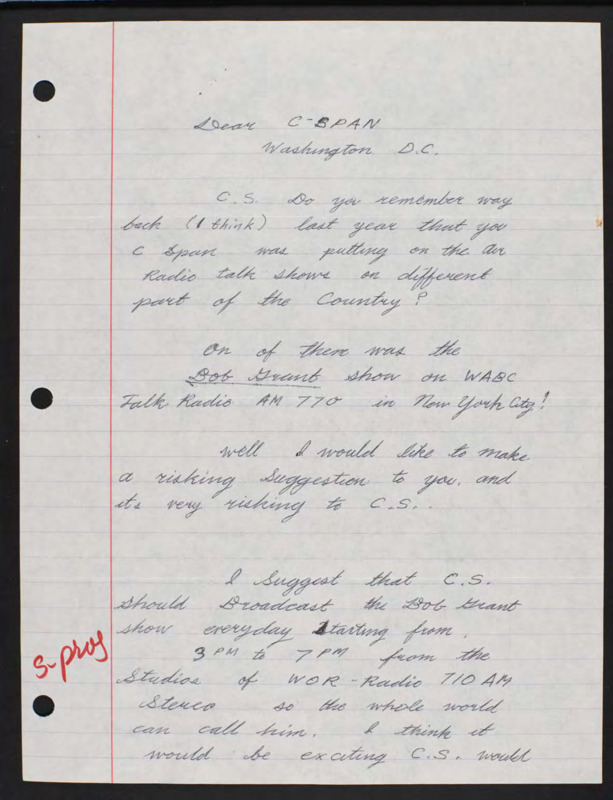 Dear C-SPAN
Washington D.C.
C.S. Do you remember way
back (I think) last year that you
C Span was putting on the air
Radio talk shows on different
part of the Country?
On of them was the
Bob Grant show on WABC
Talk Radio AM 770 in New York City!
Well I would like to make
a risking Suggestion to you, and
its very risking to C.S..
I Suggest that C.S.
Should Broadcast the Bob Grant
show everyday Starting from
3 PM to 7 PM from the
Studios of WOR-Radio 710 AM
Stereo so the whole world
can call him. I think it
would be exciting C.S. would
S-prog